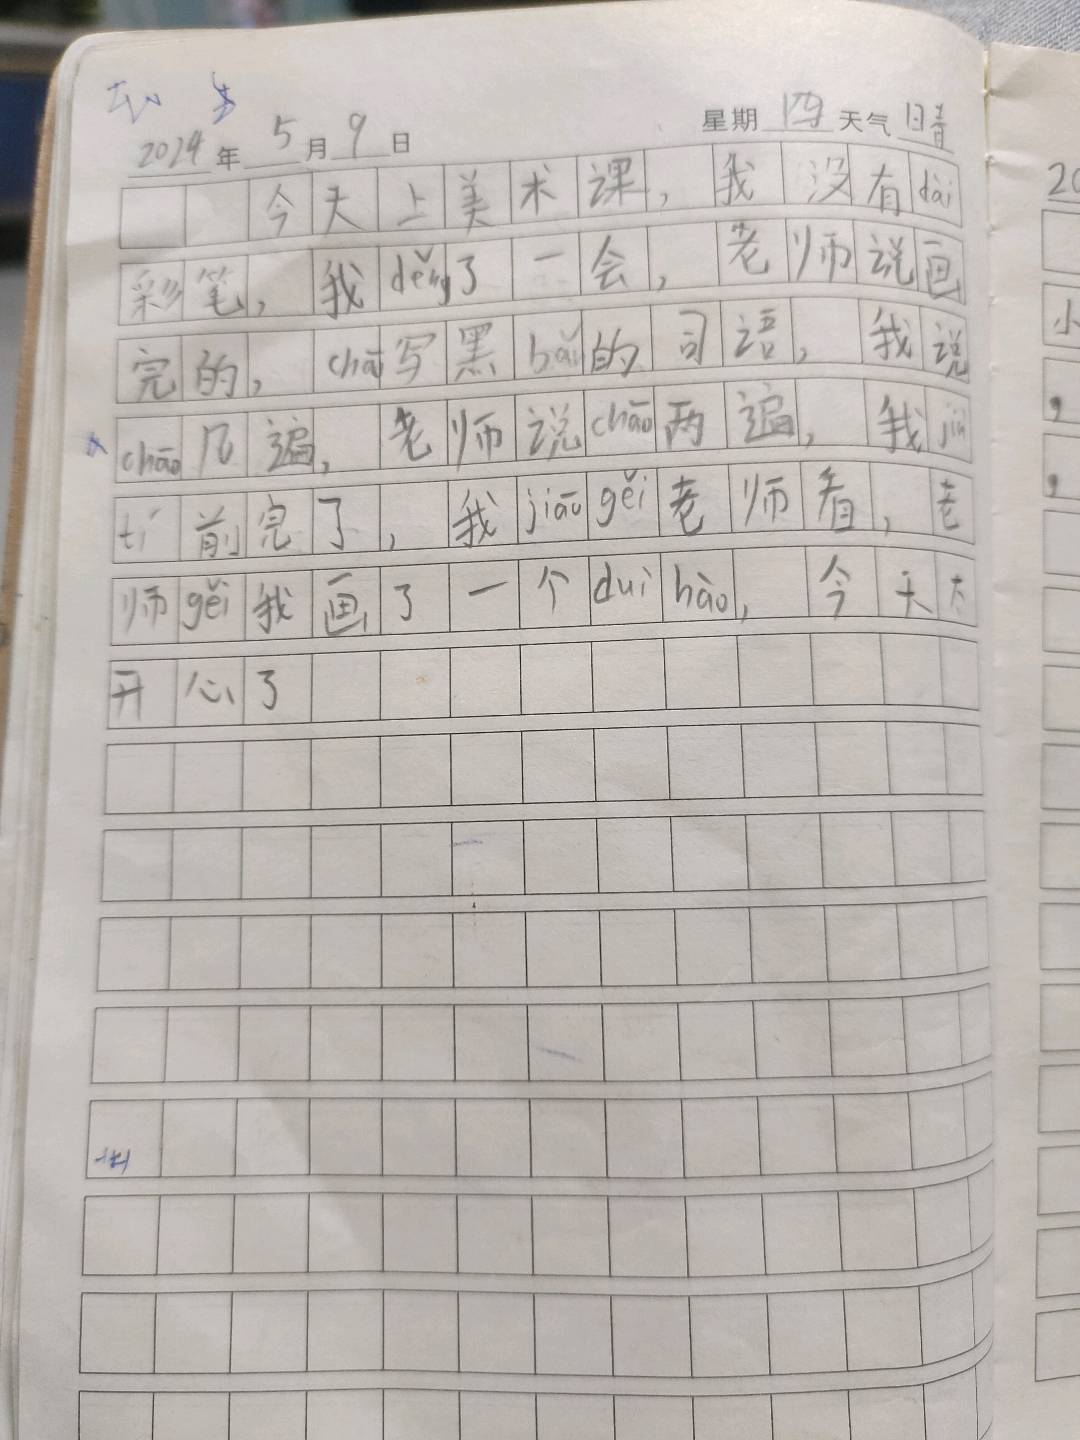 2024年5月9日 星期四天气晴
今天上美术课，我没有dài
彩笔，我děng了一会，老师说画
完的，chāo写黑bǎn的司语，我说
chāo几遍，老师说chāo两遍，我jiù
tí前完了，我jiāogěi老师看，老
师gěi我画了一个duìhào，今天太
开心了
20
小
，
，